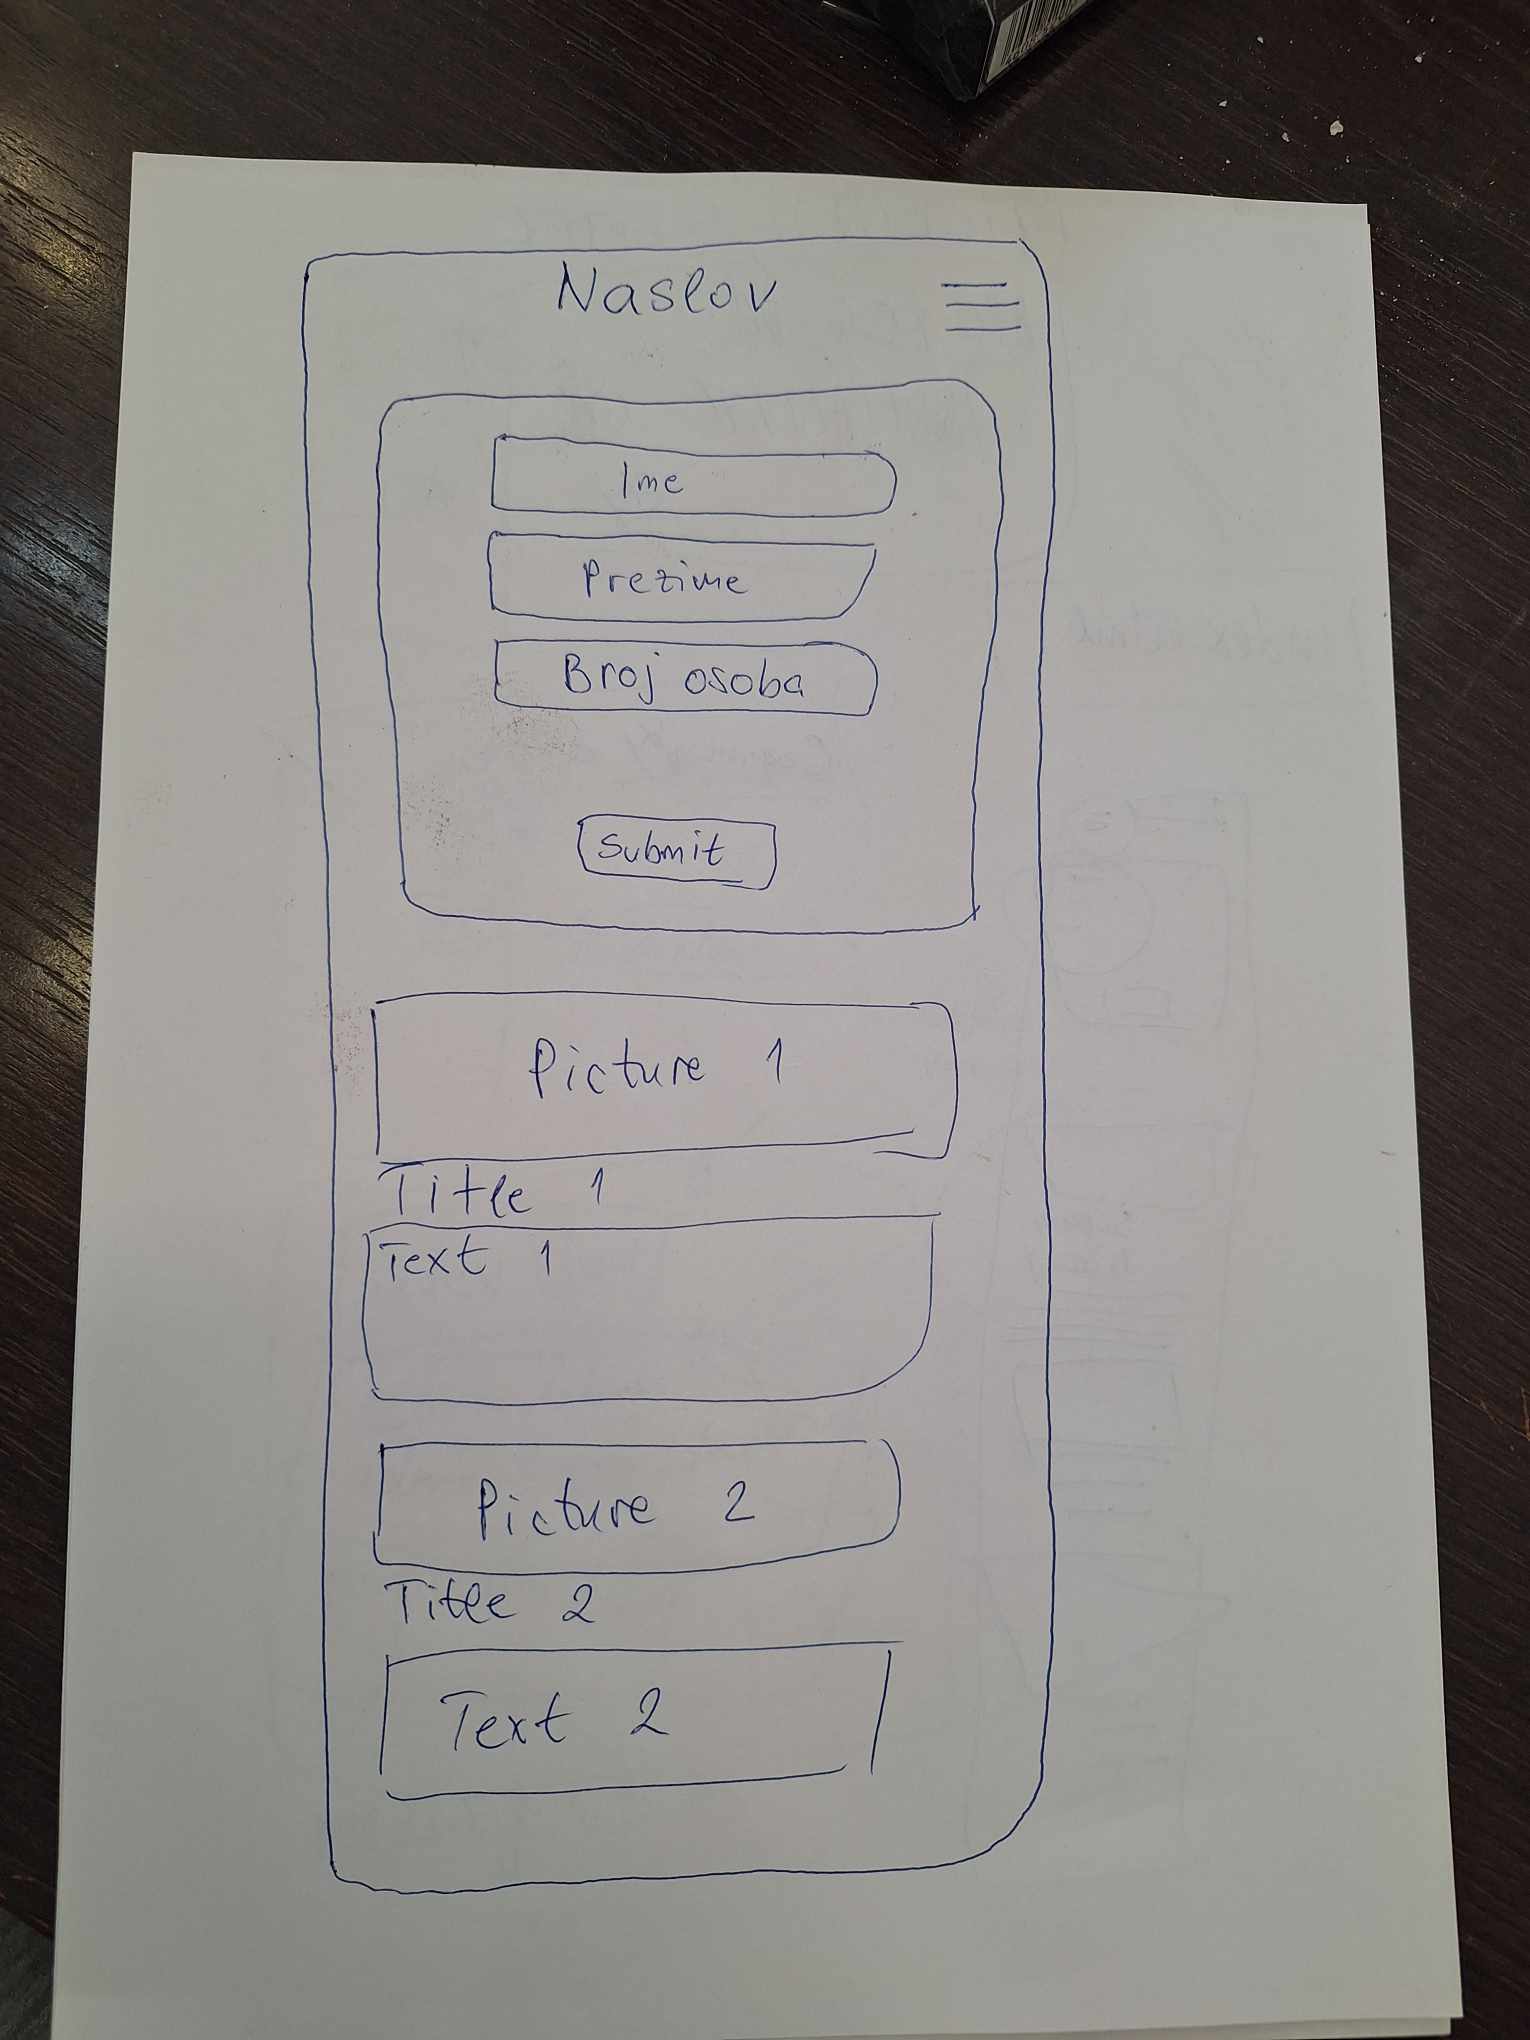 Naslov
Ime
Prezime
Broj osoba
Submit
Picture 1
Title 1
Text 1
Picture 2
Title 2
Text 2